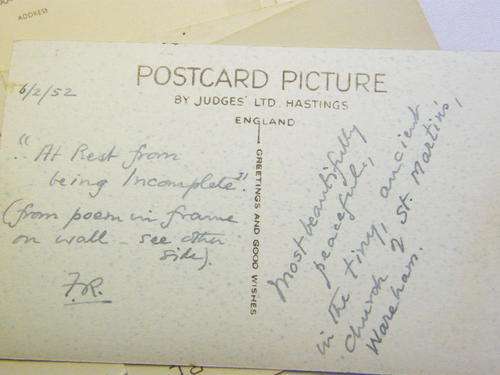 ADDRESS
POSTCARD PICTURE
BY JUDGES' LTD. HASTINGS
ENGLAND
6/2/52
"At Rest from
being Incomplete".
(from poem in frame
on wall - see other
side).
F.R.
GREETINGS AND GOOD WISHES
Most beautifully
peaceful,
in the tiny, ancient
Church of St. Martin's,
Wareham.